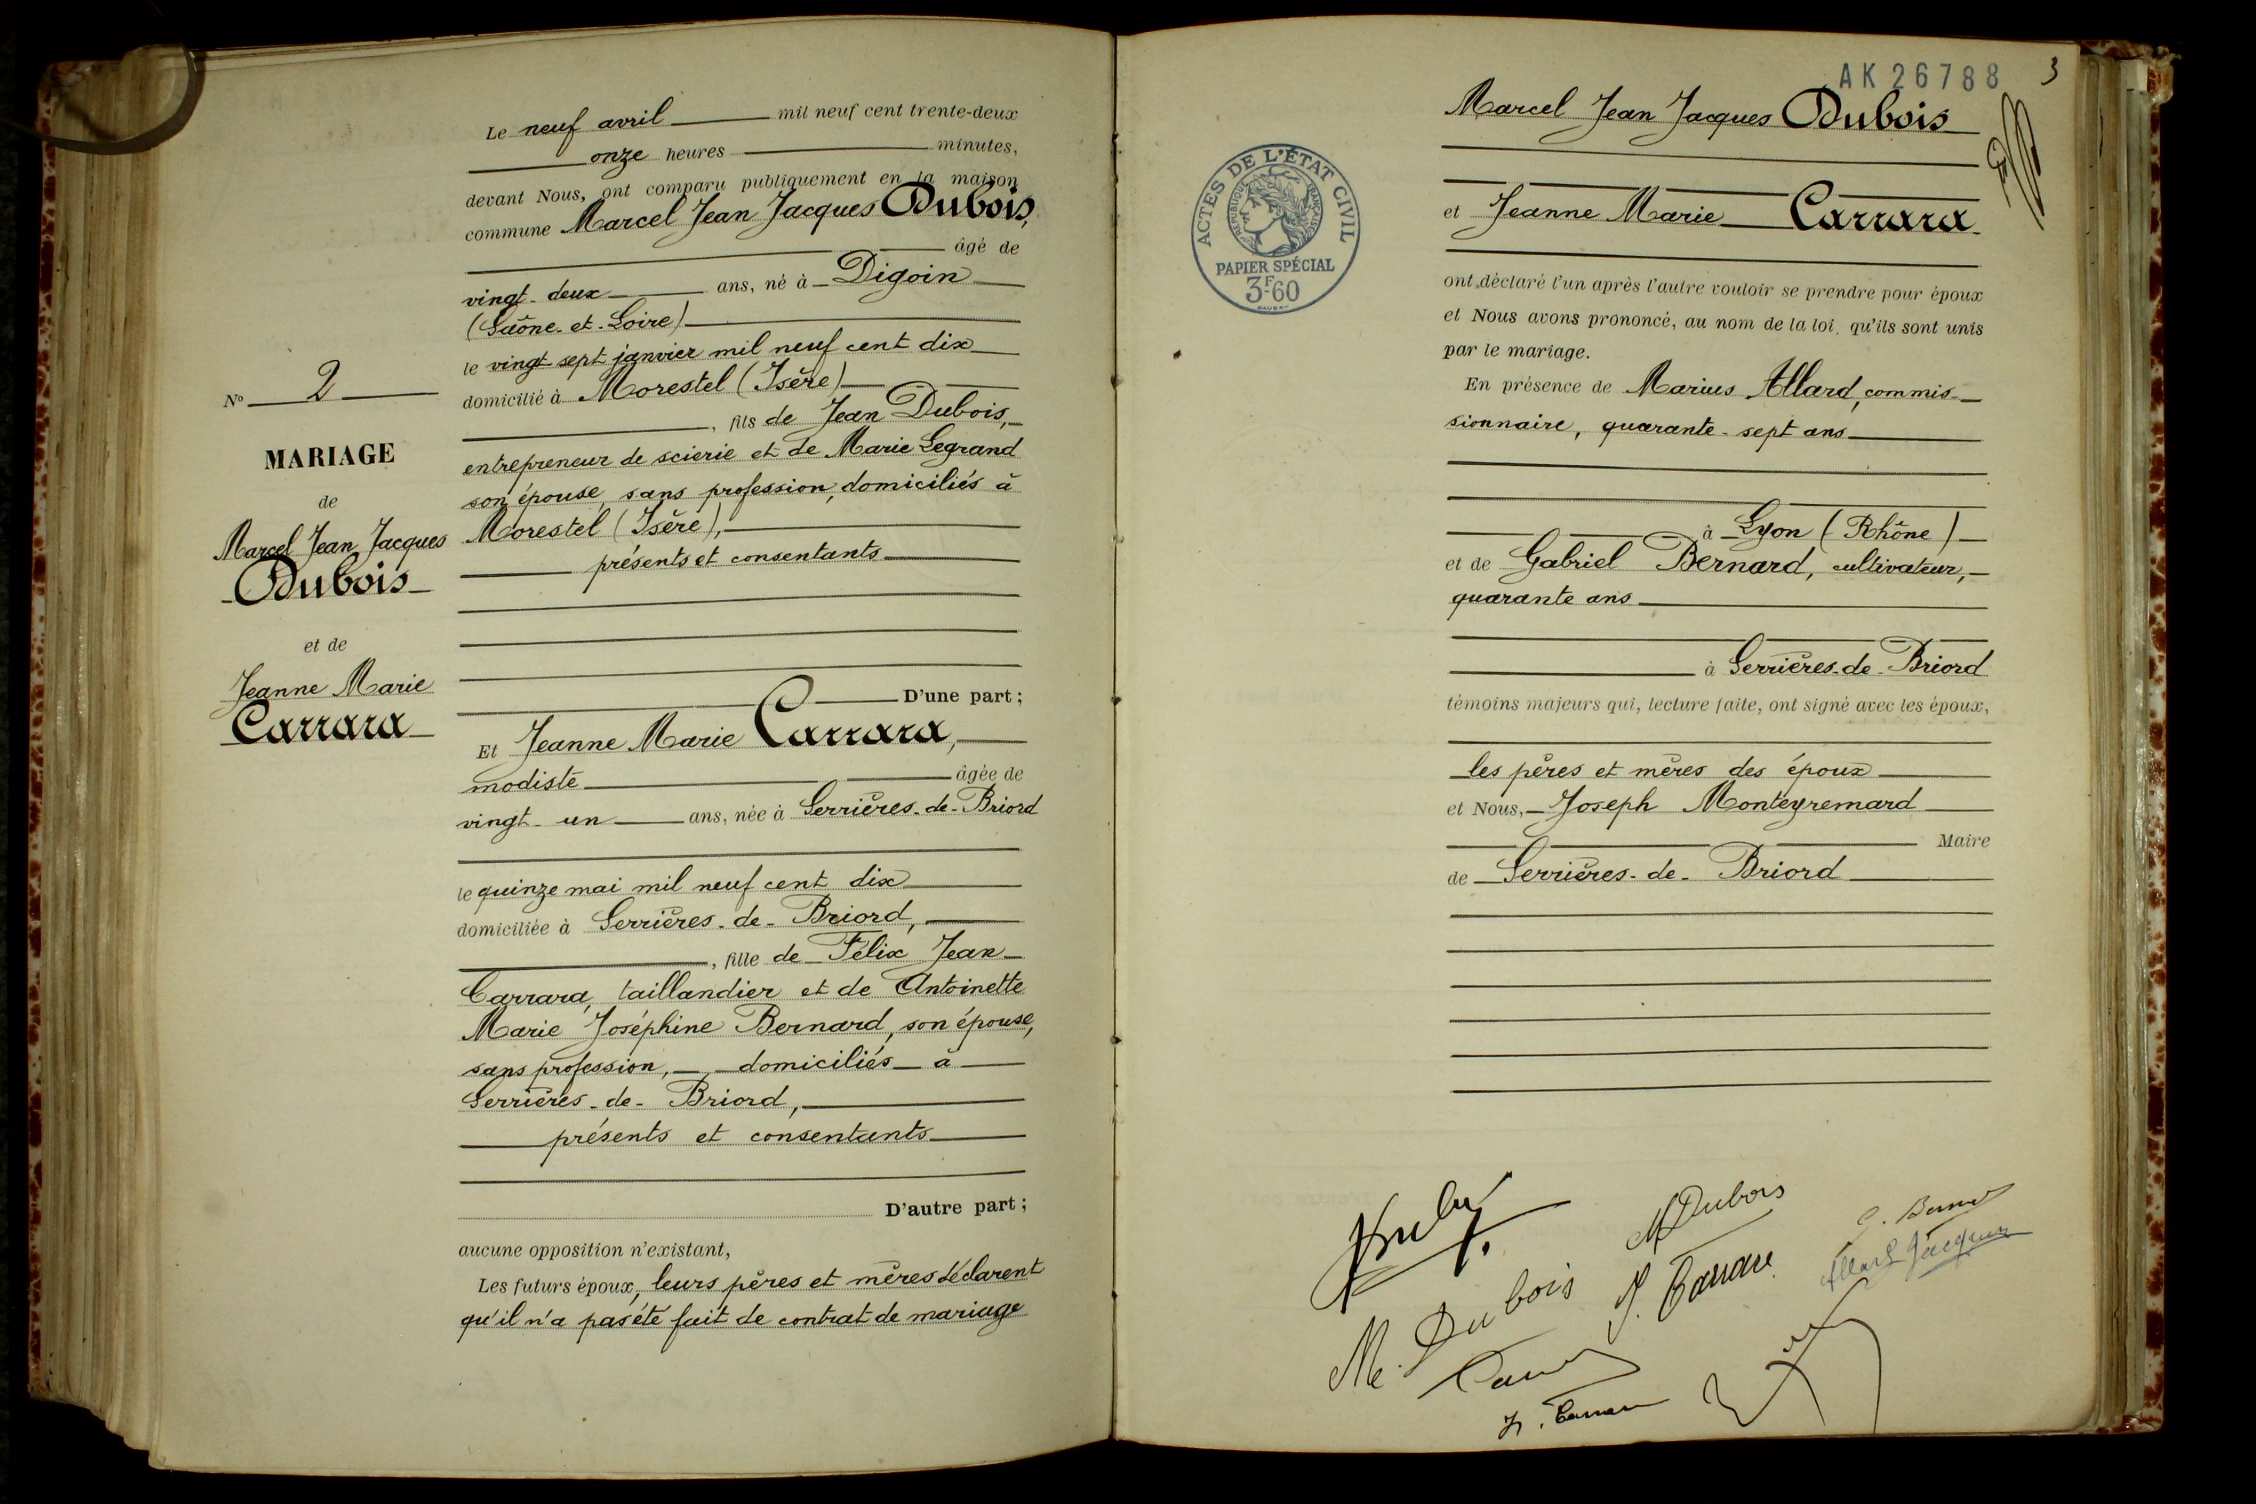 Le neuf avril mil neuf cent trente-deux
onze heures minutes,
devant Nous, ont comparu publiquement en la maison
commune Marcel Jean Jacques Dubois,
âgé de
vingt-deux ans, né à Digoin
(Saône-et-Loire)
le vingt sept janvier mil neuf cent dix
domicilié à Morestel (Isère)
, fils de Jean Dubois,
entrepreneur de scierie et de Marie Legrand
son épouse, sans profession, domiciliés à
Morestel (Isère),
présents et consentants
D'une part;
Et Jeanne Marie Carrara,
modiste âgée de
vingt-un ans, née à Serrières-de-Briord
le quinze mai mil neuf cent dix
domiciliée à Serrières-de-Briord,
, fille de Félix Jean
Carrara, taillandier et de Antoinette
Marie Joséphine Bernard, son épouse,
sans profession, domiciliés à
Serrières-de-Briord,
présents et consentants
D'autre part;
aucune opposition n'existant,
Les futurs époux, leurs pères et mères déclarent
qu'il n'a pas été fait de contrat de mariage
N° 2
MARIAGE
de
Marcel Jean Jacques
Dubois
et de
Jeanne Marie
Carrara
AK 26788
3
ACTES DE L'ÉTAT CIVIL
RÉPUBLIQUE FRANÇAISE
PAPIER SPÉCIAL
3F60
Marcel Jean Jacques Dubois
et Jeanne Marie Carrara
ont déclaré l'un après l'autre vouloir se prendre pour époux
et Nous avons prononcé, au nom de la loi, qu'ils sont unis
par le mariage.
En présence de Marius Allard, commis-
sionnaire, quarante-sept ans
à Lyon (Rhône)
et de Gabriel Bernard, cultivateur,
quarante ans
à Serrières-de-Briord
témoins majeurs qui, lecture faite, ont signé avec les époux,
les pères et mères des époux
et Nous, Joseph Monteyremard
Maire
de Serrières-de-Briord
M Dubois
Me. Dubois
J. Carrara